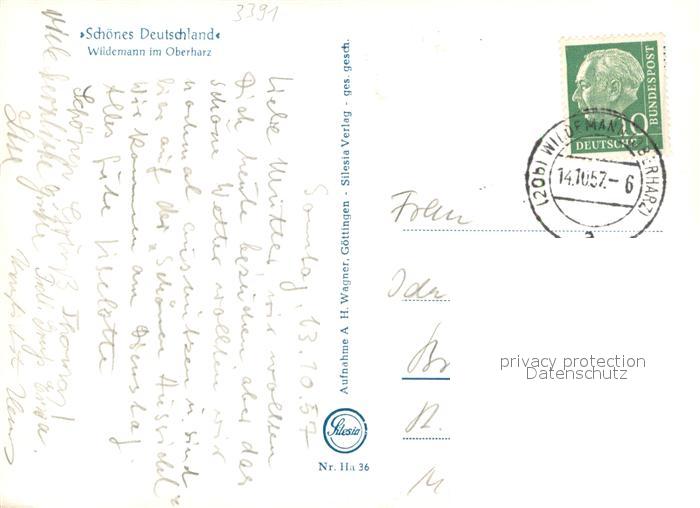 3391
»Schönes Deutschland«
Wildemann im Oberharz
Sonntag, 13.10.57
Liebe Mutter, wir wollten
Dich heute besuchen aber das
schöne Wetter wollten wir
nochmal ausnützen u. sind
hier auf der "Schönen Aussicht"
Wir kommen am Dienstag.
Alles Gute Liselotte
Schönen Gruß Thomas!
Viele herzliche Grüße
Else
Hans
Aufnahme A. H. Wagner, Göttingen - Silesia Verlag - ges. gesch.
Silesia
Nr. Ha 36
DEUTSCHE
BUNDESPOST
(20b) WILDEMANN (OBERHARZ)
14.10.57.- 6
a
Frau
Ida
Br
privacy protection
Datenschutz